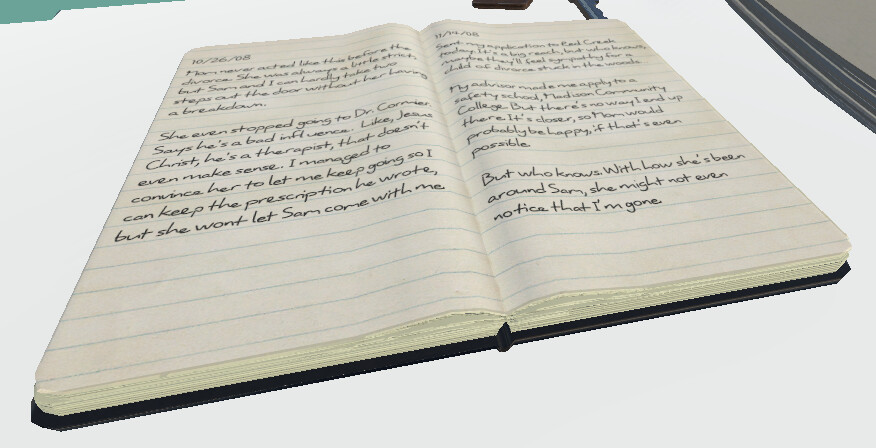 10/26/08
Mom never acted like this before the
divorce. She was always a little strict,
but Sam and I can hardly take two
steps out the door without her having
a breakdown.
She even stopped going to Dr. Cormier.
Says he's a bad influence. Like, Jesus
Christ, he's a therapist, that doesn't
even make sense. I managed to
convince her to let me keep going so I
can keep the prescription he wrote,
but she wont let Sam come with me.
11/14/08
Sent my application to Red Creek
today. It's a big reach, but who knows,
maybe they'll feel sympathy for a
child of divorce stuck in the woods.
My advisor made me apply to a
safety school, Madison Community
College. But there's no way I end up
there. It's closer, so Mom would
probably be happy, if that's even
possible.
But who knows. With how she's been
around Sam, she might not even
notice that I'm gone.